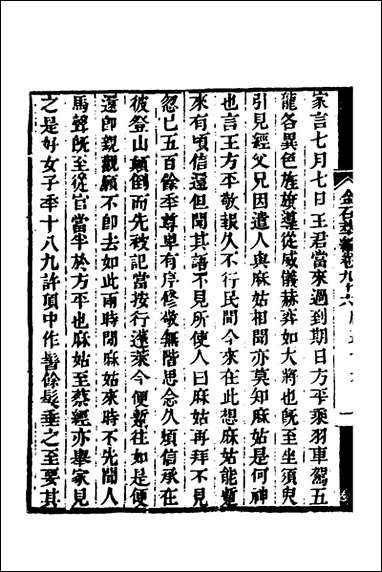 家言七月七日王君當來過到期日方平乘羽車駕五
龍各異色旌旗導從威儀赫弈如大將也既至坐須臾
引見經父兄因遣人與麻姑相聞亦莫知麻姑是何神
也言王方平敬報久不行民間今來在此想麻姑能暫
來有頃信還但聞其語不見所使人曰麻姑再拜不見
忽已五百餘年尊卑有序修敬無階思念久頃信承在
彼登山顛倒而先被記當按行蓬萊今便暫往如是便
還即親觀願不即去如此兩時間麻姑來時不先聞人
馬聲既至從官當半於方平也麻姑至蔡經亦舉家見
之是好女子年十八九許頂中作髻餘髮垂之至要其
金石萃編卷九十六